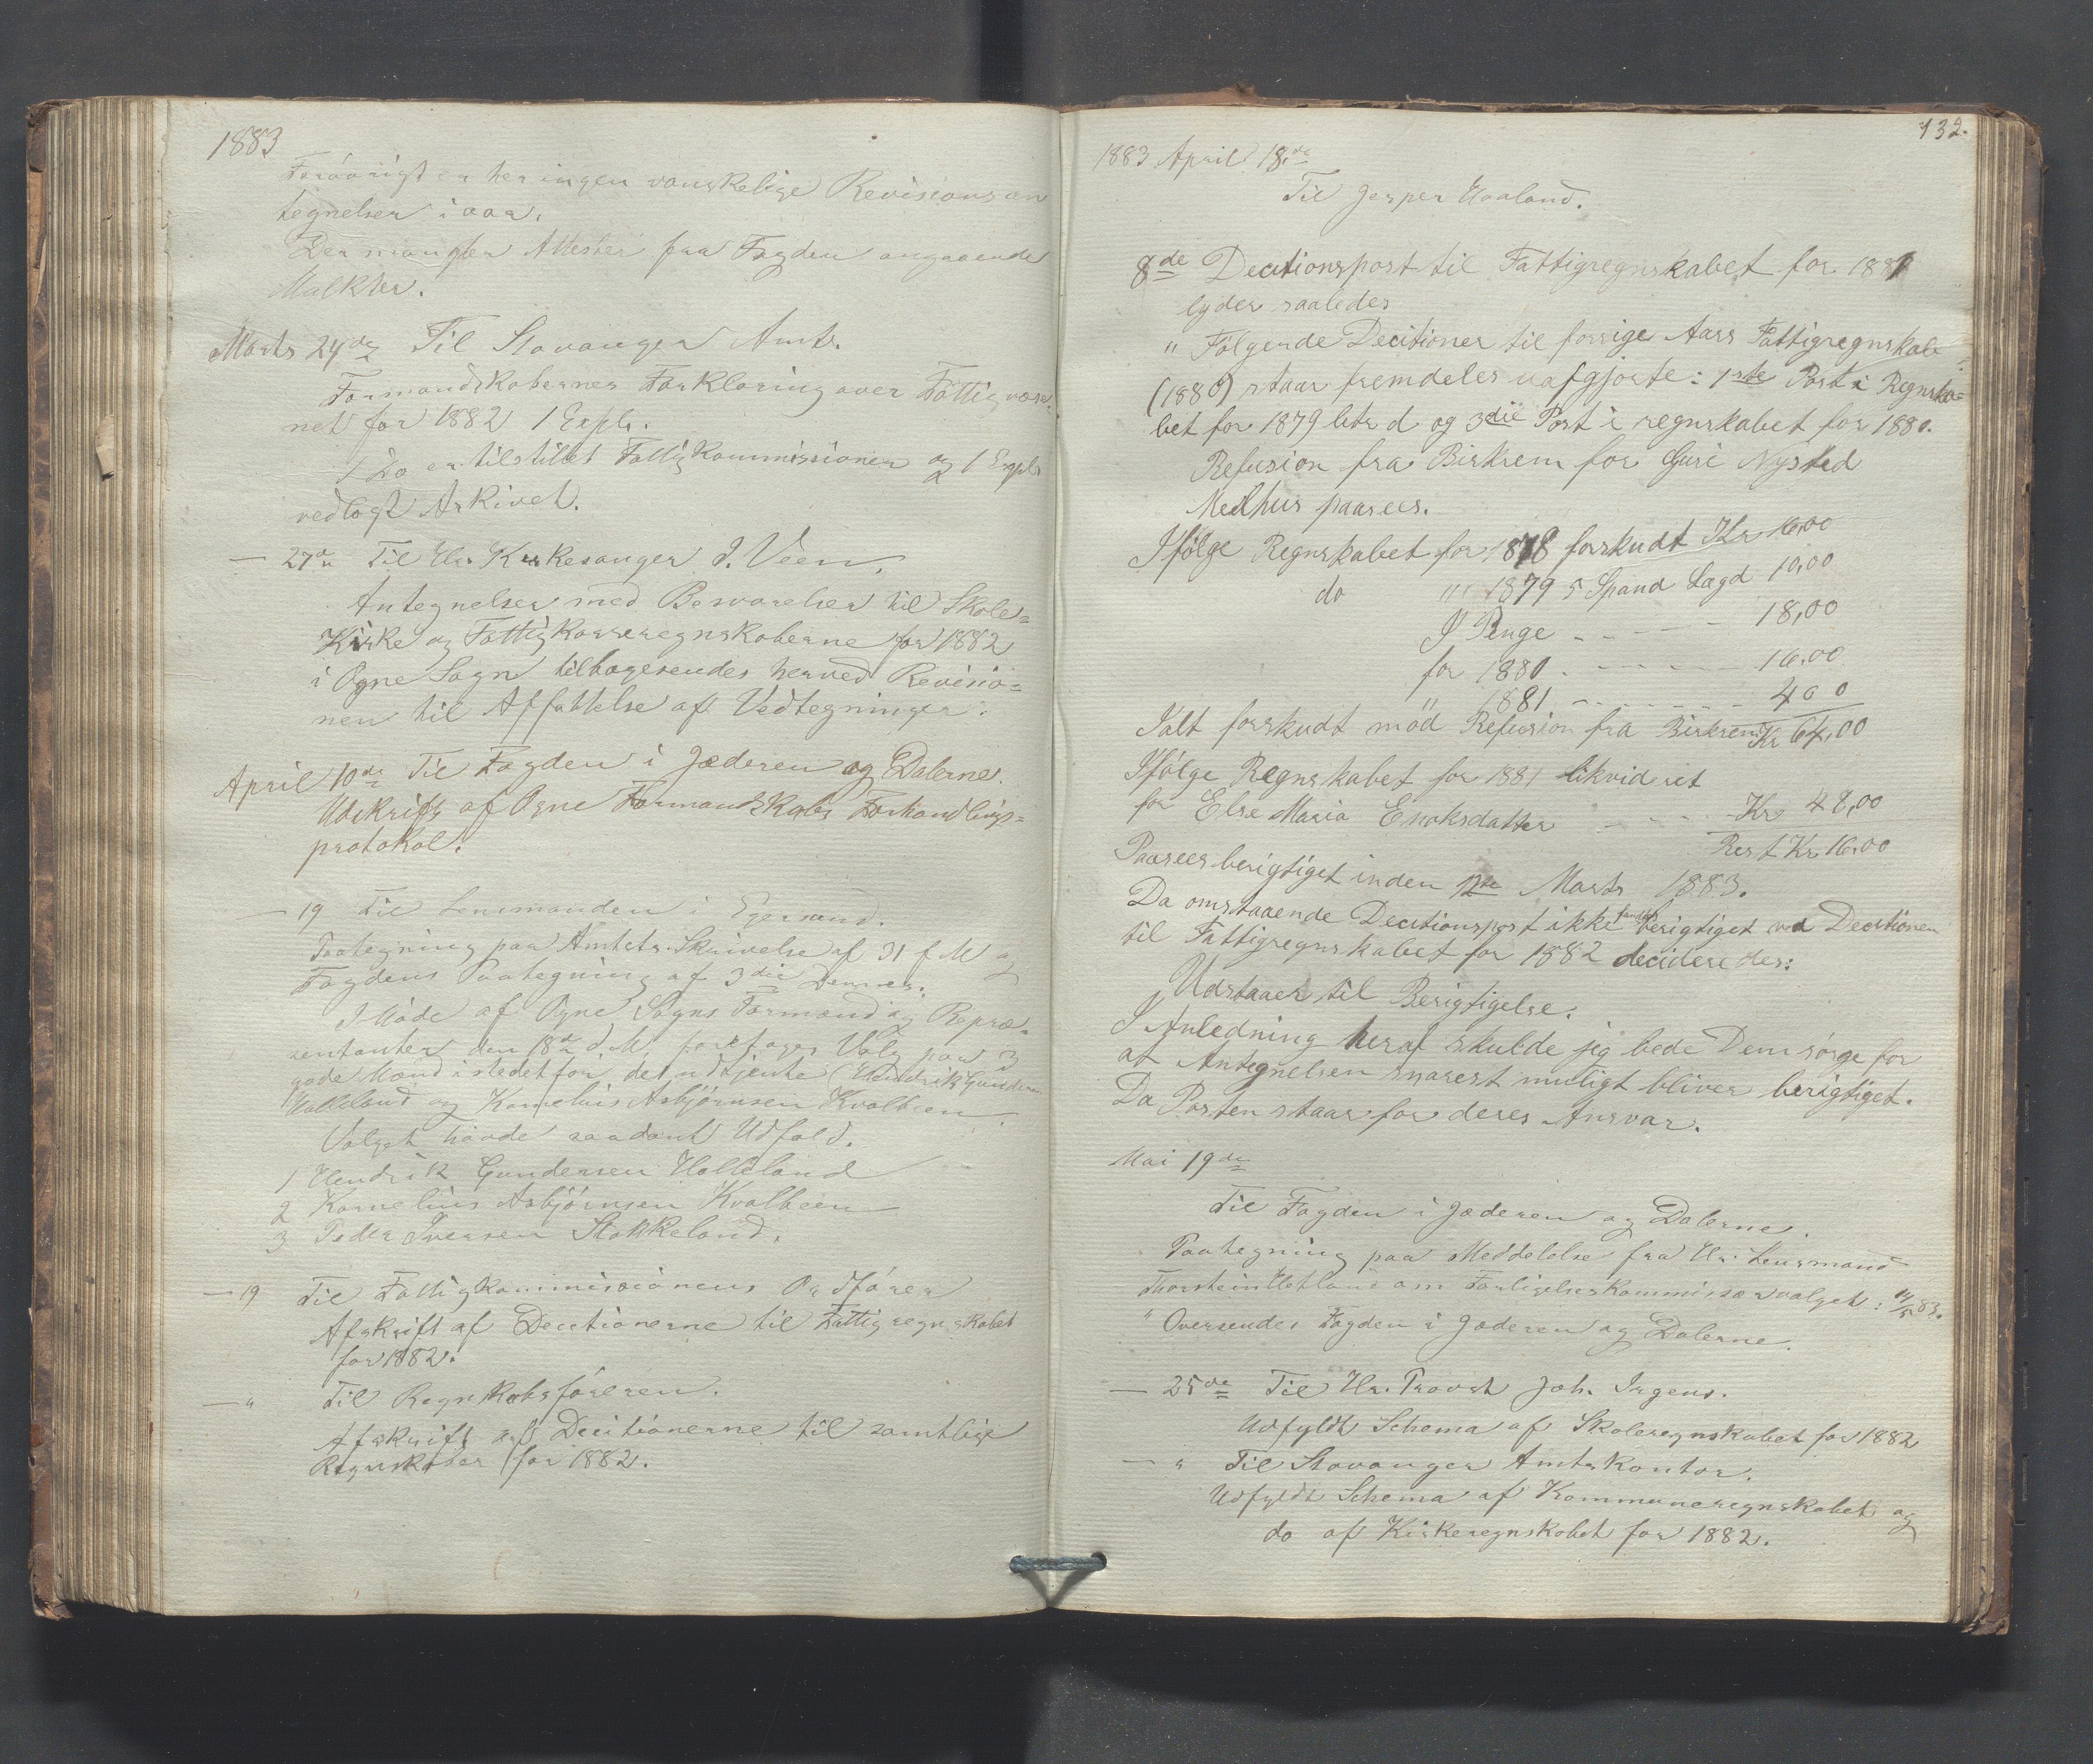 1883
Forövrigt er her ingen vanskelige Revisionsan
tegnelser i aar.
Der mangler Attester fra Fogden angaaende
Mulkter.
Marts 24de Til Stavanger Amt.
Formandskabernes Forklaring over Fattigvæse-
net for 1882 1 Expl.
1 Do er tilstillet Fattigkommissionen og 1 Expl.
vedlagt Arkivet.
— 27de Til Hr. Kirkesanger J. Veen.
Antegnelser med Besvarelser til Skole=
Kirke og Fattigkasseregnskaberne for 1882
i Ogne Sogn tilbagesendes herved Revisio=
nen til Affattelse af Vedtegninger.
April 10de Til Fogden i Jæderen og Dalerne.
Udskrift af Ogne Formandskabs Forhandlings=
protokol.
— 19 Til Lensmanden i Egersund.
Paategning paa Amtets Skrivelse af 31 f. M og
Fogdens Paategning af 3die Dennes.
I Möde af Ogne Sogns Formænd og Repræ=
sentanter den 18de d. M. foretoges Valg paa 3
gode Mænd istedetfor de udtjente (Hendrik Gundersen
Halleland og Kornelius Asbjörnsen Kvalbeen.
Valget havde saadant Udfald.
1 Hendrik Gundersen Halleland
2 Kornelius Asbjörnsen Kvalbeen
3 Peder Iversen Stokkeland.
— 19 Til Fattigkommissionens Ordförer
Afskrift af Decitionerne til Fattigregnskabet
for 1882.
— " Til Regnskabsföreren.
Afskrift af Decitionerne til samtlige
Regnskaber for 1882.
132.
1883 April 18de
Til Jesper Haaland.
8de Decitionspost til Fattigregnskabet for 1881
lyder saaledes
" Fölgende Decitioner til forrige Aars Fattigregnskab
(1880) staar fremdeles uafgjorte: 1ste Post i Regnska=
bet for 1879 litr d og 3die Post i regnskabet for 1880.
Refusion fra Birkrem for Guri Nysted
Melhus paasees.
Ifölge Regnskabet for 1878 forskudt Kr 16.00
do " 1879 5 Spand Lægd 10,00
I Penge - - - - - 18,00
for 1880 - - - - - 16.00
" 1881 - - - - - - 4 0 0
Ialt forskudt mod Refusion fra Birkrem Kr 64,00
Ifölge Regnskabet for 1881 likvideret
for Else Maria Enoksdatter - - - - Kr 48,00
Rest Kr 16.00
Paasees berigtiget inden 12te Marts 1883.
Da omstaaende Decitionspost ikke fandtes berigtiget ved Decitionen
til Fattigregnskabet for 1882 decideredes:
Udstaaer til Berigtigelse.
I Anledning heraf skulde jeg bede Dem sörge for
at Antegnelsen snarest muligt bliver berigtiget.
Da Posten staar for deres Ansvar.
Mai 19de
Til Fogden i Jæderen og Dalerne.
Paategning paa Meddelelse fra Hr. Lensmand
Thorstein Hetland om Forligelseskommissærvalget: 14/5 83.
" Oversendes Fogden i Jæderen og Dalerne.
— 25de Til Hr. Provst Joh. Irgens.
Udfyldt Schema af Skoleregnskabet for 1882
— " Til Stavanger Amtskontor.
Udfyldt Schema af Kommuneregnskabet og
do af Kirkeregnskabet for 1882.